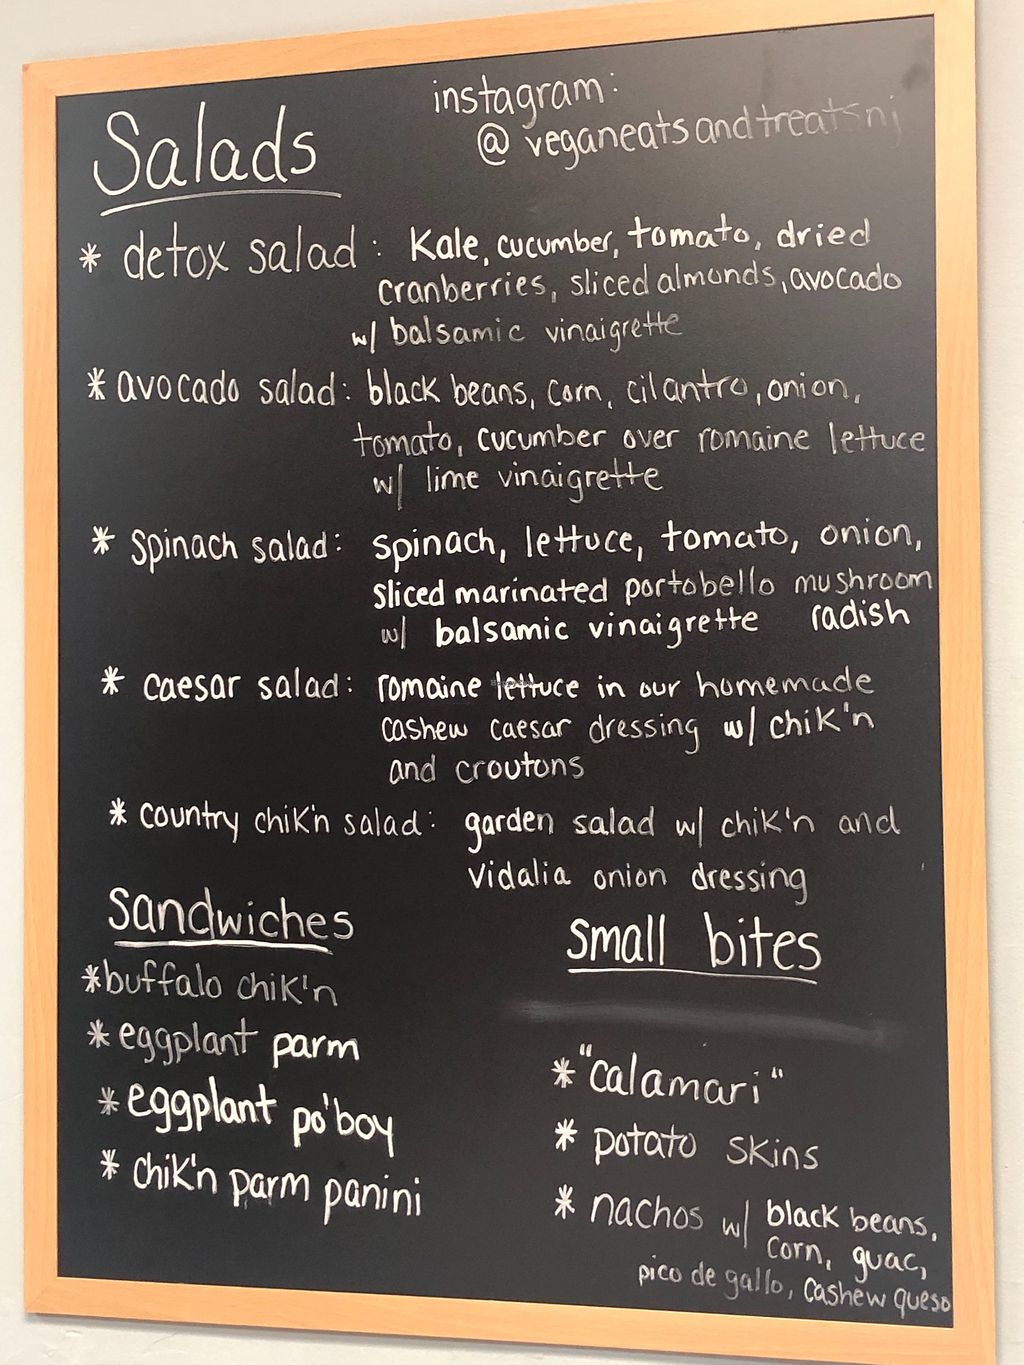 Salads
instagram:
@veganeatsandtreatsnj
* detox salad: Kale, cucumber, tomato, dried
cranberries, sliced almonds, avocado
w/ balsamic vinaigrette
* avocado salad: black beans, corn, cilantro, onion,
tomato, cucumber over romaine lettuce
w/ lime vinaigrette
* Spinach salad: spinach, lettuce, tomato, onion,
sliced marinated portobello mushroom
w/ balsamic vinaigrette radish
* caesar salad: romaine lettuce in our homemade
cashew caesar dressing w/ chik'n
and croutons
* country chik'n salad: garden salad w/ chik'n and
vidalia onion dressing
Sandwiches
* buffalo chik'n
* eggplant parm
* eggplant po'boy
* chik'n parm panini
small bites
* "calamari"
* potato skins
* nachos w/ black beans,
corn, guac,
pico de gallo, cashew queso